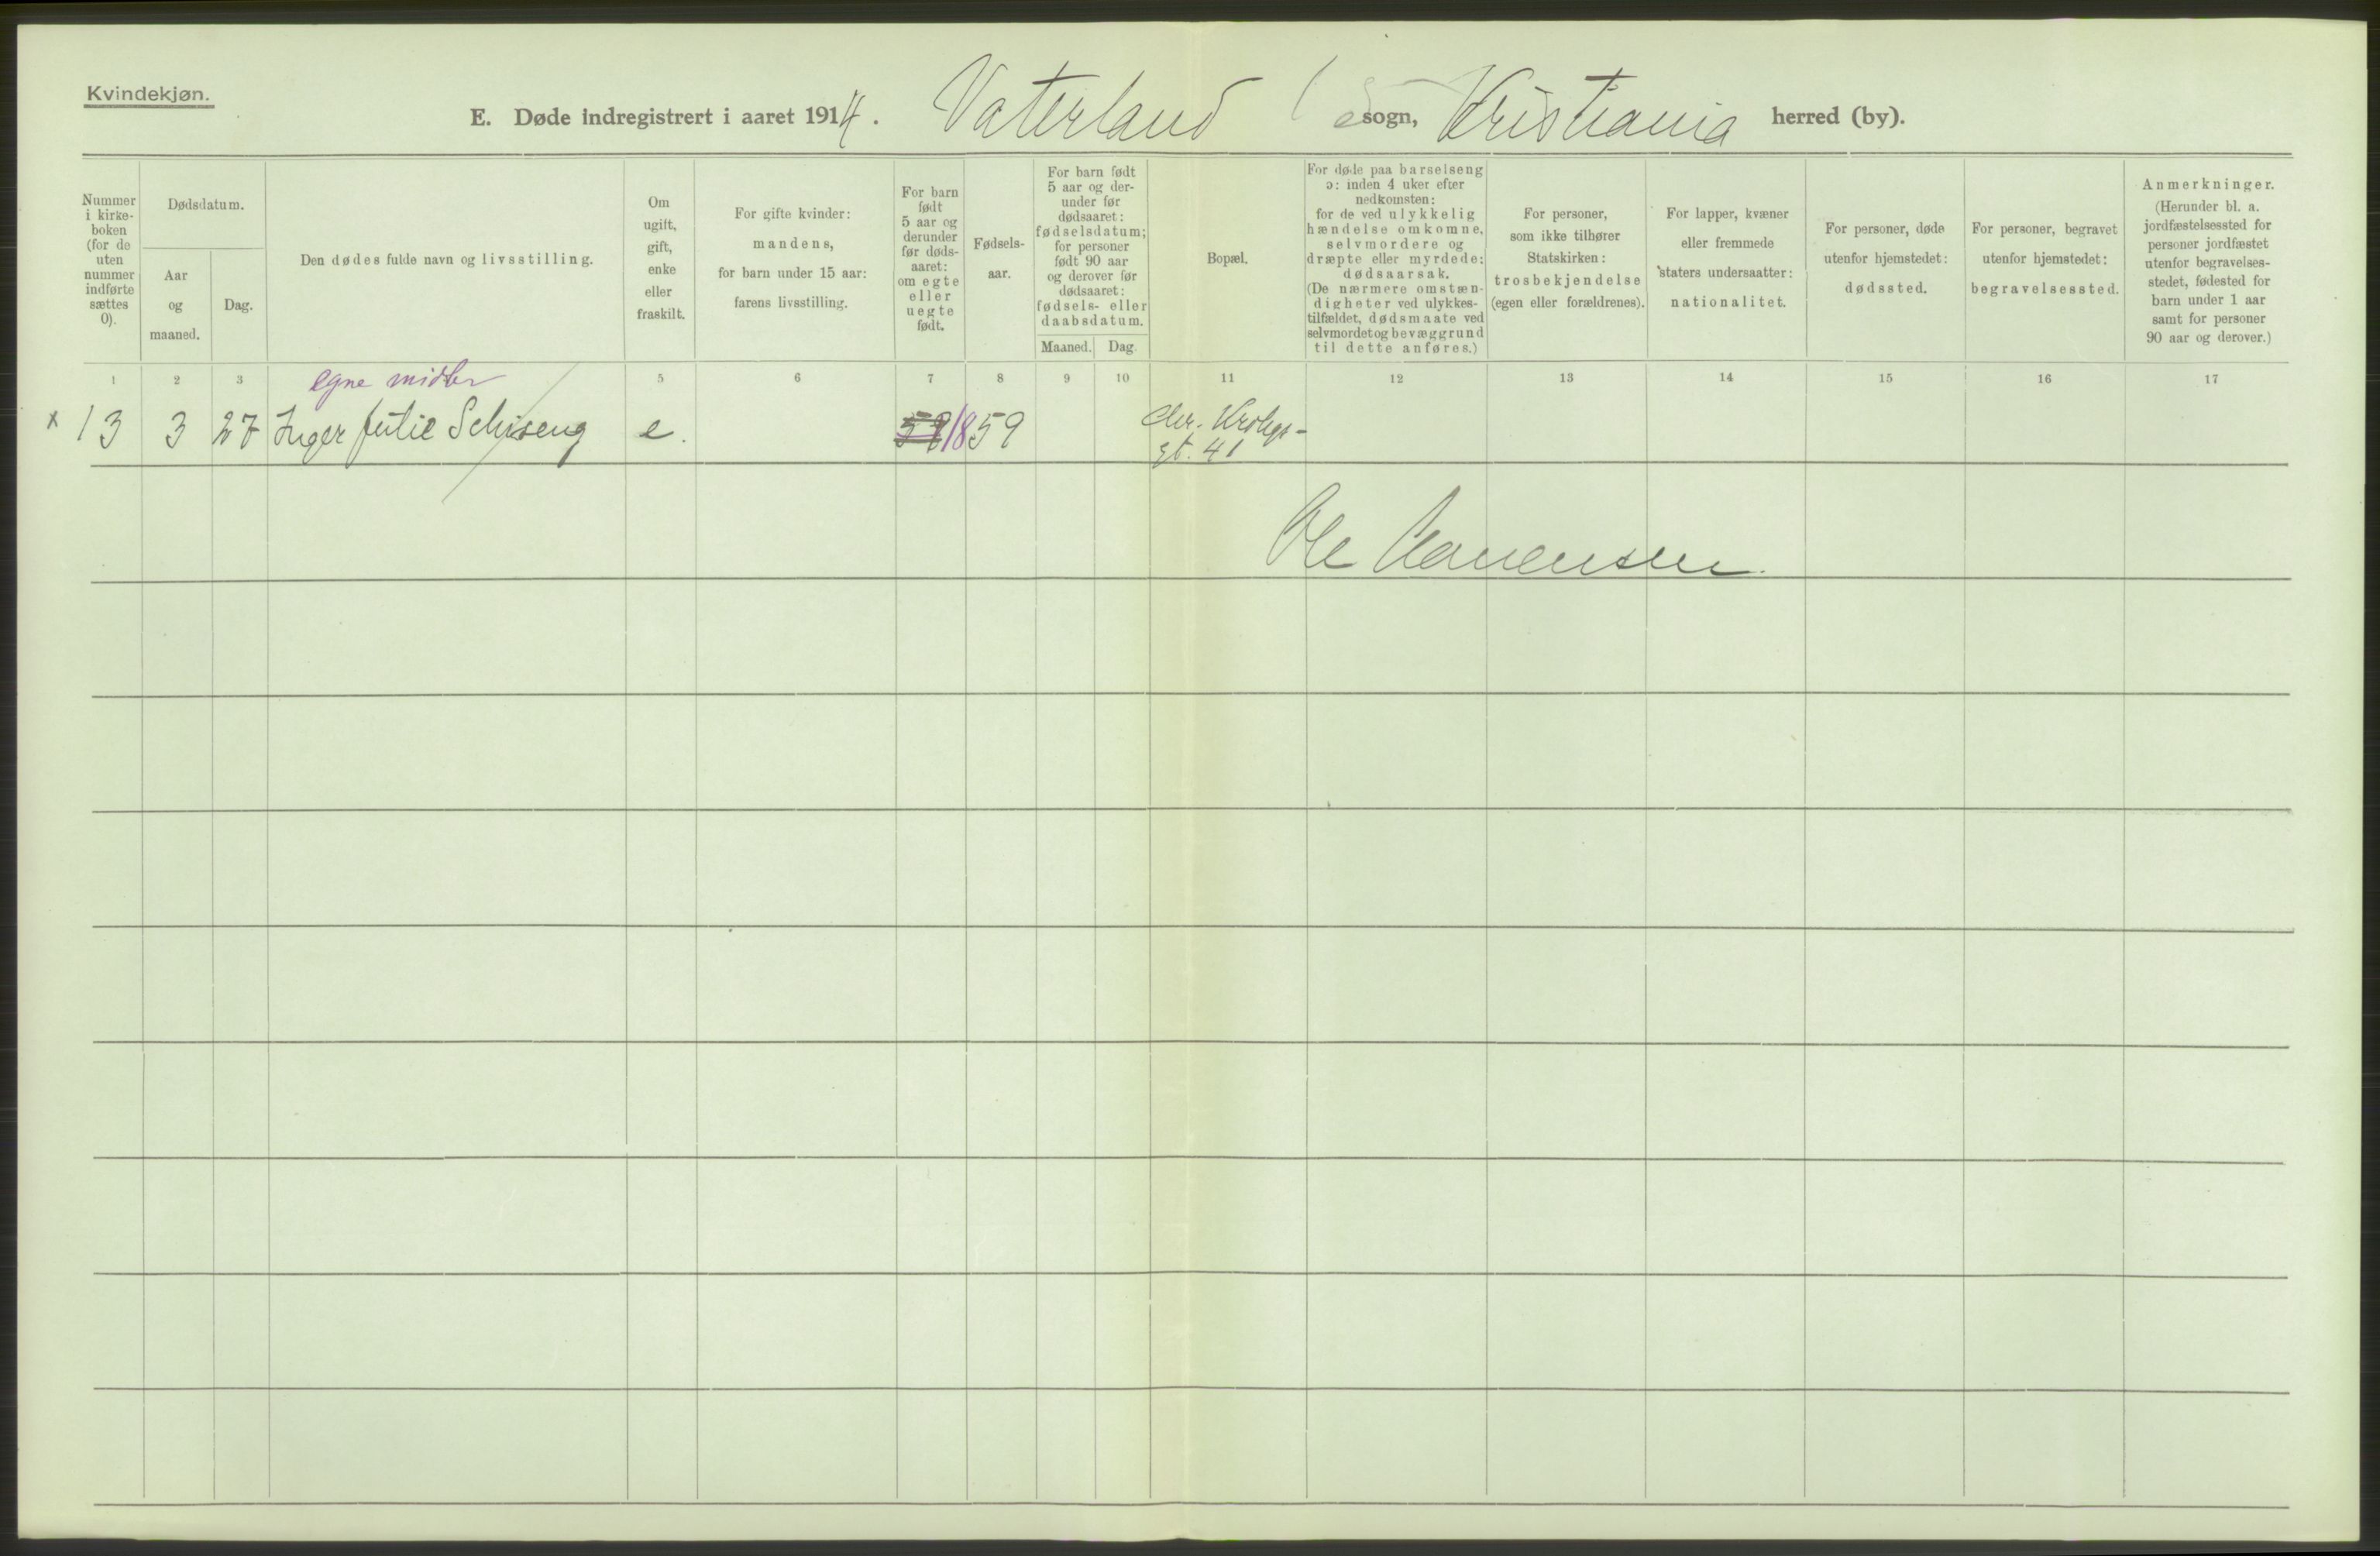 Kvindekjøn.
E. Døde indregistrert i aaret 1914. Vaterland sogn, Kristiania herred (by).
Nummer
i kirke-
boken
(for de
uten
nummer
indførte
sættes
0).
Dødsdatum.
Aar
og
maaned.
Dag.
Den dødes fulde navn og livsstilling.
Om
ugift,
gift,
enke
eller
fraskilt.
For gifte kvinder:
mandens,
for barn under 15 aar:
farens livsstilling.
For barn
født
5 aar og
derunder
før døds-
aaret:
om egte
eller
uegte
født.
Fødsels-
aar.
For barn født
5 aar og der-
under før
dødsaaret:
fødselsdatum;
for personer
født 90 aar
og derover før
dødsaaret:
fødsels- eller
daabsdatum.
Maaned. Dag.
Bopæl.
For døde paa barselseng
ɔ: inden 4 uker efter
nedkomsten:
for de ved ulykkelig
hændelse omkomne,
selvmordere og
dræpte eller myrdede:
dødsaarsak.
(De nærmere omstæn-
digheter ved ulykkes-
tilfældet, dødsmaate ved
selvmordet og bevæggrund
til dette anføres.)
For personer,
som ikke tilhører
Statskirken:
trosbekjendelse
(egen eller forældrenes).
For lapper, kvæner
eller fremmede
staters undersaatter:
nationalitet.
For personer, døde
utenfor hjemstedet:
dødssted.
For personer, begravet
utenfor hjemstedet:
begravelsessted.
Anmerkninger.
(Herunder bl. a.
jordfæstelsessted for
personer jordfæstet
utenfor begravelses-
stedet, fødested for
barn under 1 aar
samt for personer
90 aar og derover.)
1 2 3 5 6 7 8 9 10 11 12 13 14 15 16 17
egne midler
x 13 3 27 Inger Julie Schiseng e. 1859 Chr. Krohgs-
gt. 41
Ole